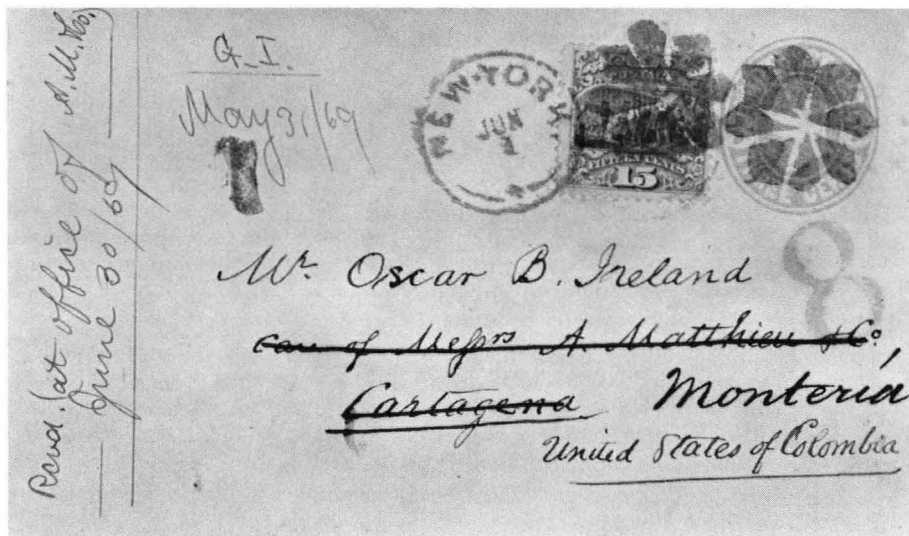 Recvd. (at office of A. M. & Co.)
June 30/69
G. I.
May 31/69
NEW-YORK
JUN
FIFTEEN CENTS
15
Mr. Oscar B. Ireland
care of Messrs A. Matthieu & Co.
Cartagena Montería,
United States of Colombia